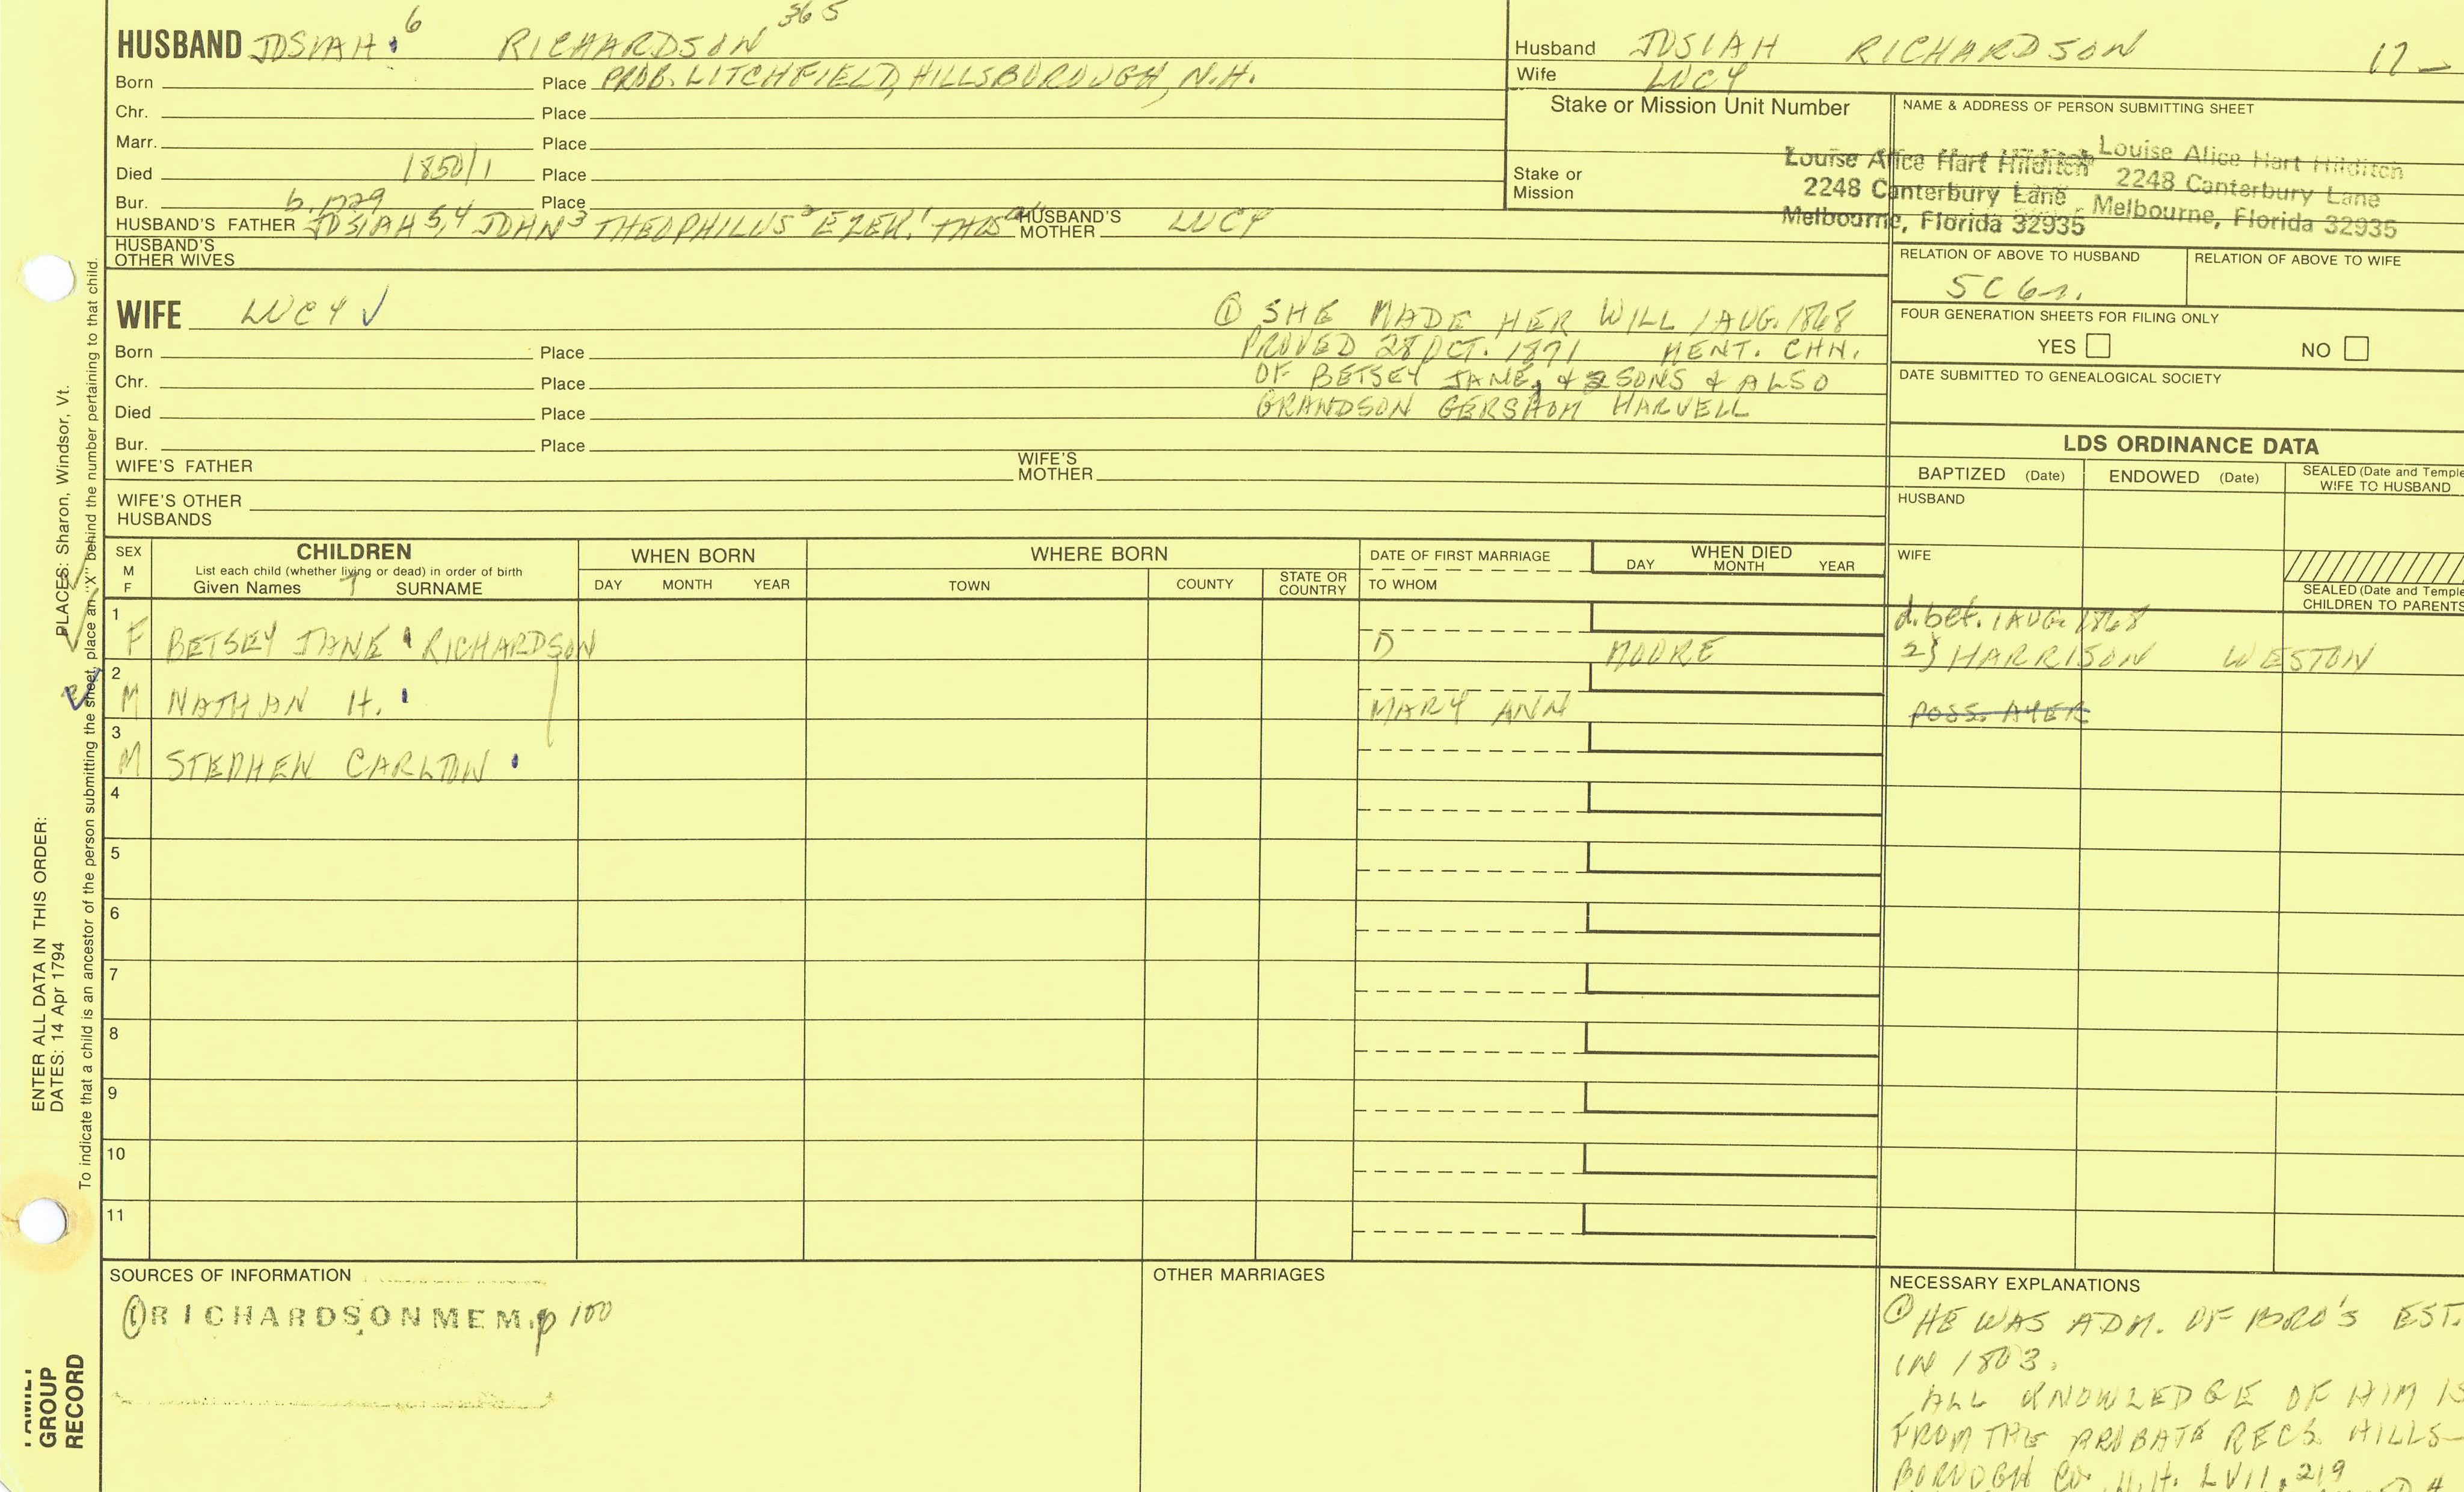 HUSBAND JOSIAH 6 RICHARDSON 365
Born Place PROB. LITCHFIELD, HILLSBOROUGH, N.H.
Chr. Place
Marr. Place
Died 1850/1 Place
Bur. Place
b. 1729
HUSBAND'S FATHER JOSIAH 5,4 JOHN 3 THEOPHILUS 2 EZEK. 1 HUSBAND'S MOTHER LUCY
HUSBAND'S OTHER WIVES
Husband JOSIAH RICHARDSON 17
Wife LUCY
Stake or Mission Unit Number
Stake or
Mission
NAME & ADDRESS OF PERSON SUBMITTING SHEET
Louise Alice Hart Hilditch
2248 Canterbury Lane
Melbourne, Florida 32935
Louise Alice Hart Hilditch
2248 Canterbury Lane
Melbourne, Florida 32935
RELATION OF ABOVE TO HUSBAND RELATION OF ABOVE TO WIFE
5C 6
FOUR GENERATION SHEETS FOR FILING ONLY
YES NO
DATE SUBMITTED TO GENEALOGICAL SOCIETY
WIFE LUCY ✓
① SHE MADE HER WILL 1 AUG. 1868
PROVED 28 OCT. 1871 MENT. CHN.
OF BETSEY JANE, & 2 SONS & ALSO
GRANDSON GERSHOM HARVELL
Born Place
Chr. Place
Died Place
Bur. Place
WIFE'S FATHER WIFE'S MOTHER
WIFE'S OTHER
HUSBANDS
LDS ORDINANCE DATA
BAPTIZED (Date) ENDOWED (Date) SEALED (Date and Temple
WIFE TO HUSBAND
HUSBAND
WIFE
SEALED (Date and Temple
CHILDREN TO PARENTS
SEX
M
F
CHILDREN
List each child (whether living or dead) in order of birth
Given Names 7 SURNAME
WHEN BORN
DAY MONTH YEAR
WHERE BORN
TOWN COUNTY STATE OR COUNTRY
DATE OF FIRST MARRIAGE
TO WHOM
WHEN DIED
DAY MONTH YEAR
d. bet. 1 AUG. 1868
1 F BETSEY JANE RICHARDSON MOORE 2) HARRISON WESTON
2 M NATHAN H. MARY ANN POSS. AYER
3 M STEPHEN CARLTON
4
5
6
7
8
9
10
11
SOURCES OF INFORMATION
① RICHARDSON MEM. p 100
OTHER MARRIAGES
NECESSARY EXPLANATIONS
① HE WAS ADM. OF BRO'S EST.
IN 1803.
ALL KNOWLEDGE OF HIM IS
FROM THE PROBATE RECS. HILLS-
BOROUGH CO. N.H. LVII, 219
PLACES: Sharon, Windsor, Vt.
ENTER ALL DATA IN THIS ORDER:
DATES: 14 Apr 1794
To indicate that a child is an ancestor of the person submitting the sheet, place an "X" behind the number pertaining to that child.
FAMILY
GROUP
RECORD